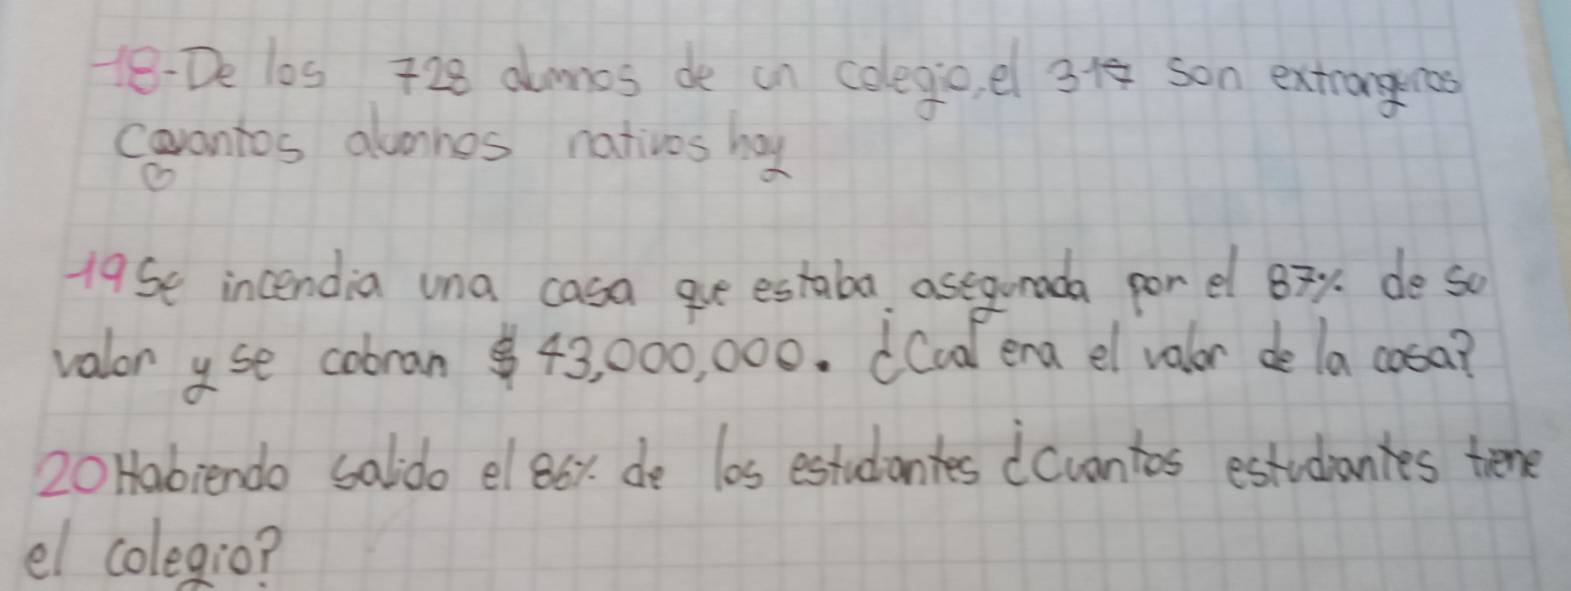 18-De los 728 alumnos de un colegio, el 31% son extrangeros
Cuantos alumnos nativos hay
19 Se incendia una casa que estaba asegurada por el 87% de su
valor y se cobran $ 43,000,000. ¿Cual era el valor de la casa?
20 Habiendo salido el 86% de los estudiantes ¿Cuantos estudiantes tiene
el colegio?